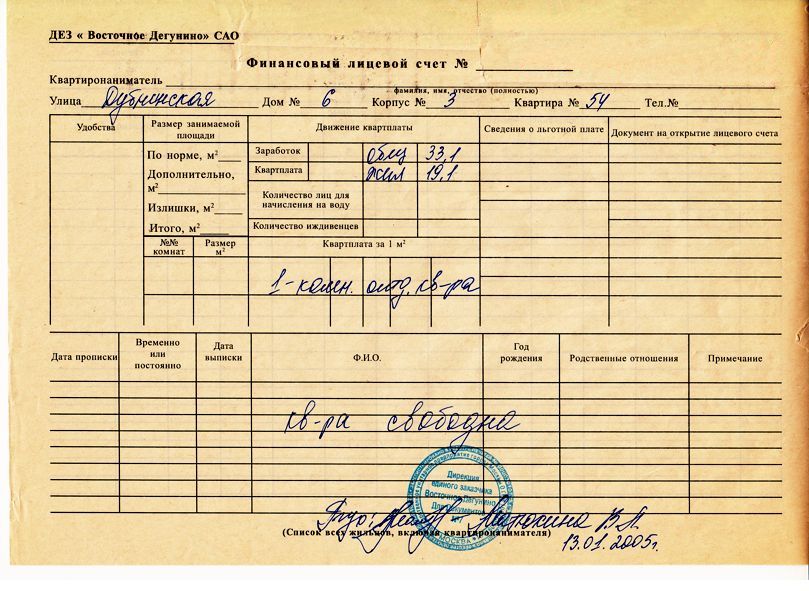 ДЕЗ « Восточное Дегунино» САО
Финансовый лицевой счет №
Квартиронаниматель
фамилия, имя, отчество (полностью)
Улица Дубнинская Дом № 6 Корпус № 3 Квартира № 54 Тел.№
Удобства
Размер занимаемой площади
Движение квартплаты
Сведения о льготной плате
Документ на открытие лицевого счета
По норме, м²
Дополнительно, м²
Излишки, м²
Итого, м²
Заработок общ 33,1
Квартплата жил 19,1
Количество лиц для начисления на воду
Количество иждивенцев
№№ комнат
Размер м²
Квартплата за 1 м²
1-комн. отд. кв-ра
Дата прописки
Временно или постоянно
Дата выписки
Ф.И.О.
Год рождения
Родственные отношения
Примечание
кв-ра свободна
Дирекция
единого заказчика
Восточное Дегунино
Для документов
№1
МОСКВА
Матюхина В.А.
(Список всех жильцов, включая квартиронанимателя)
13.01.2005г.